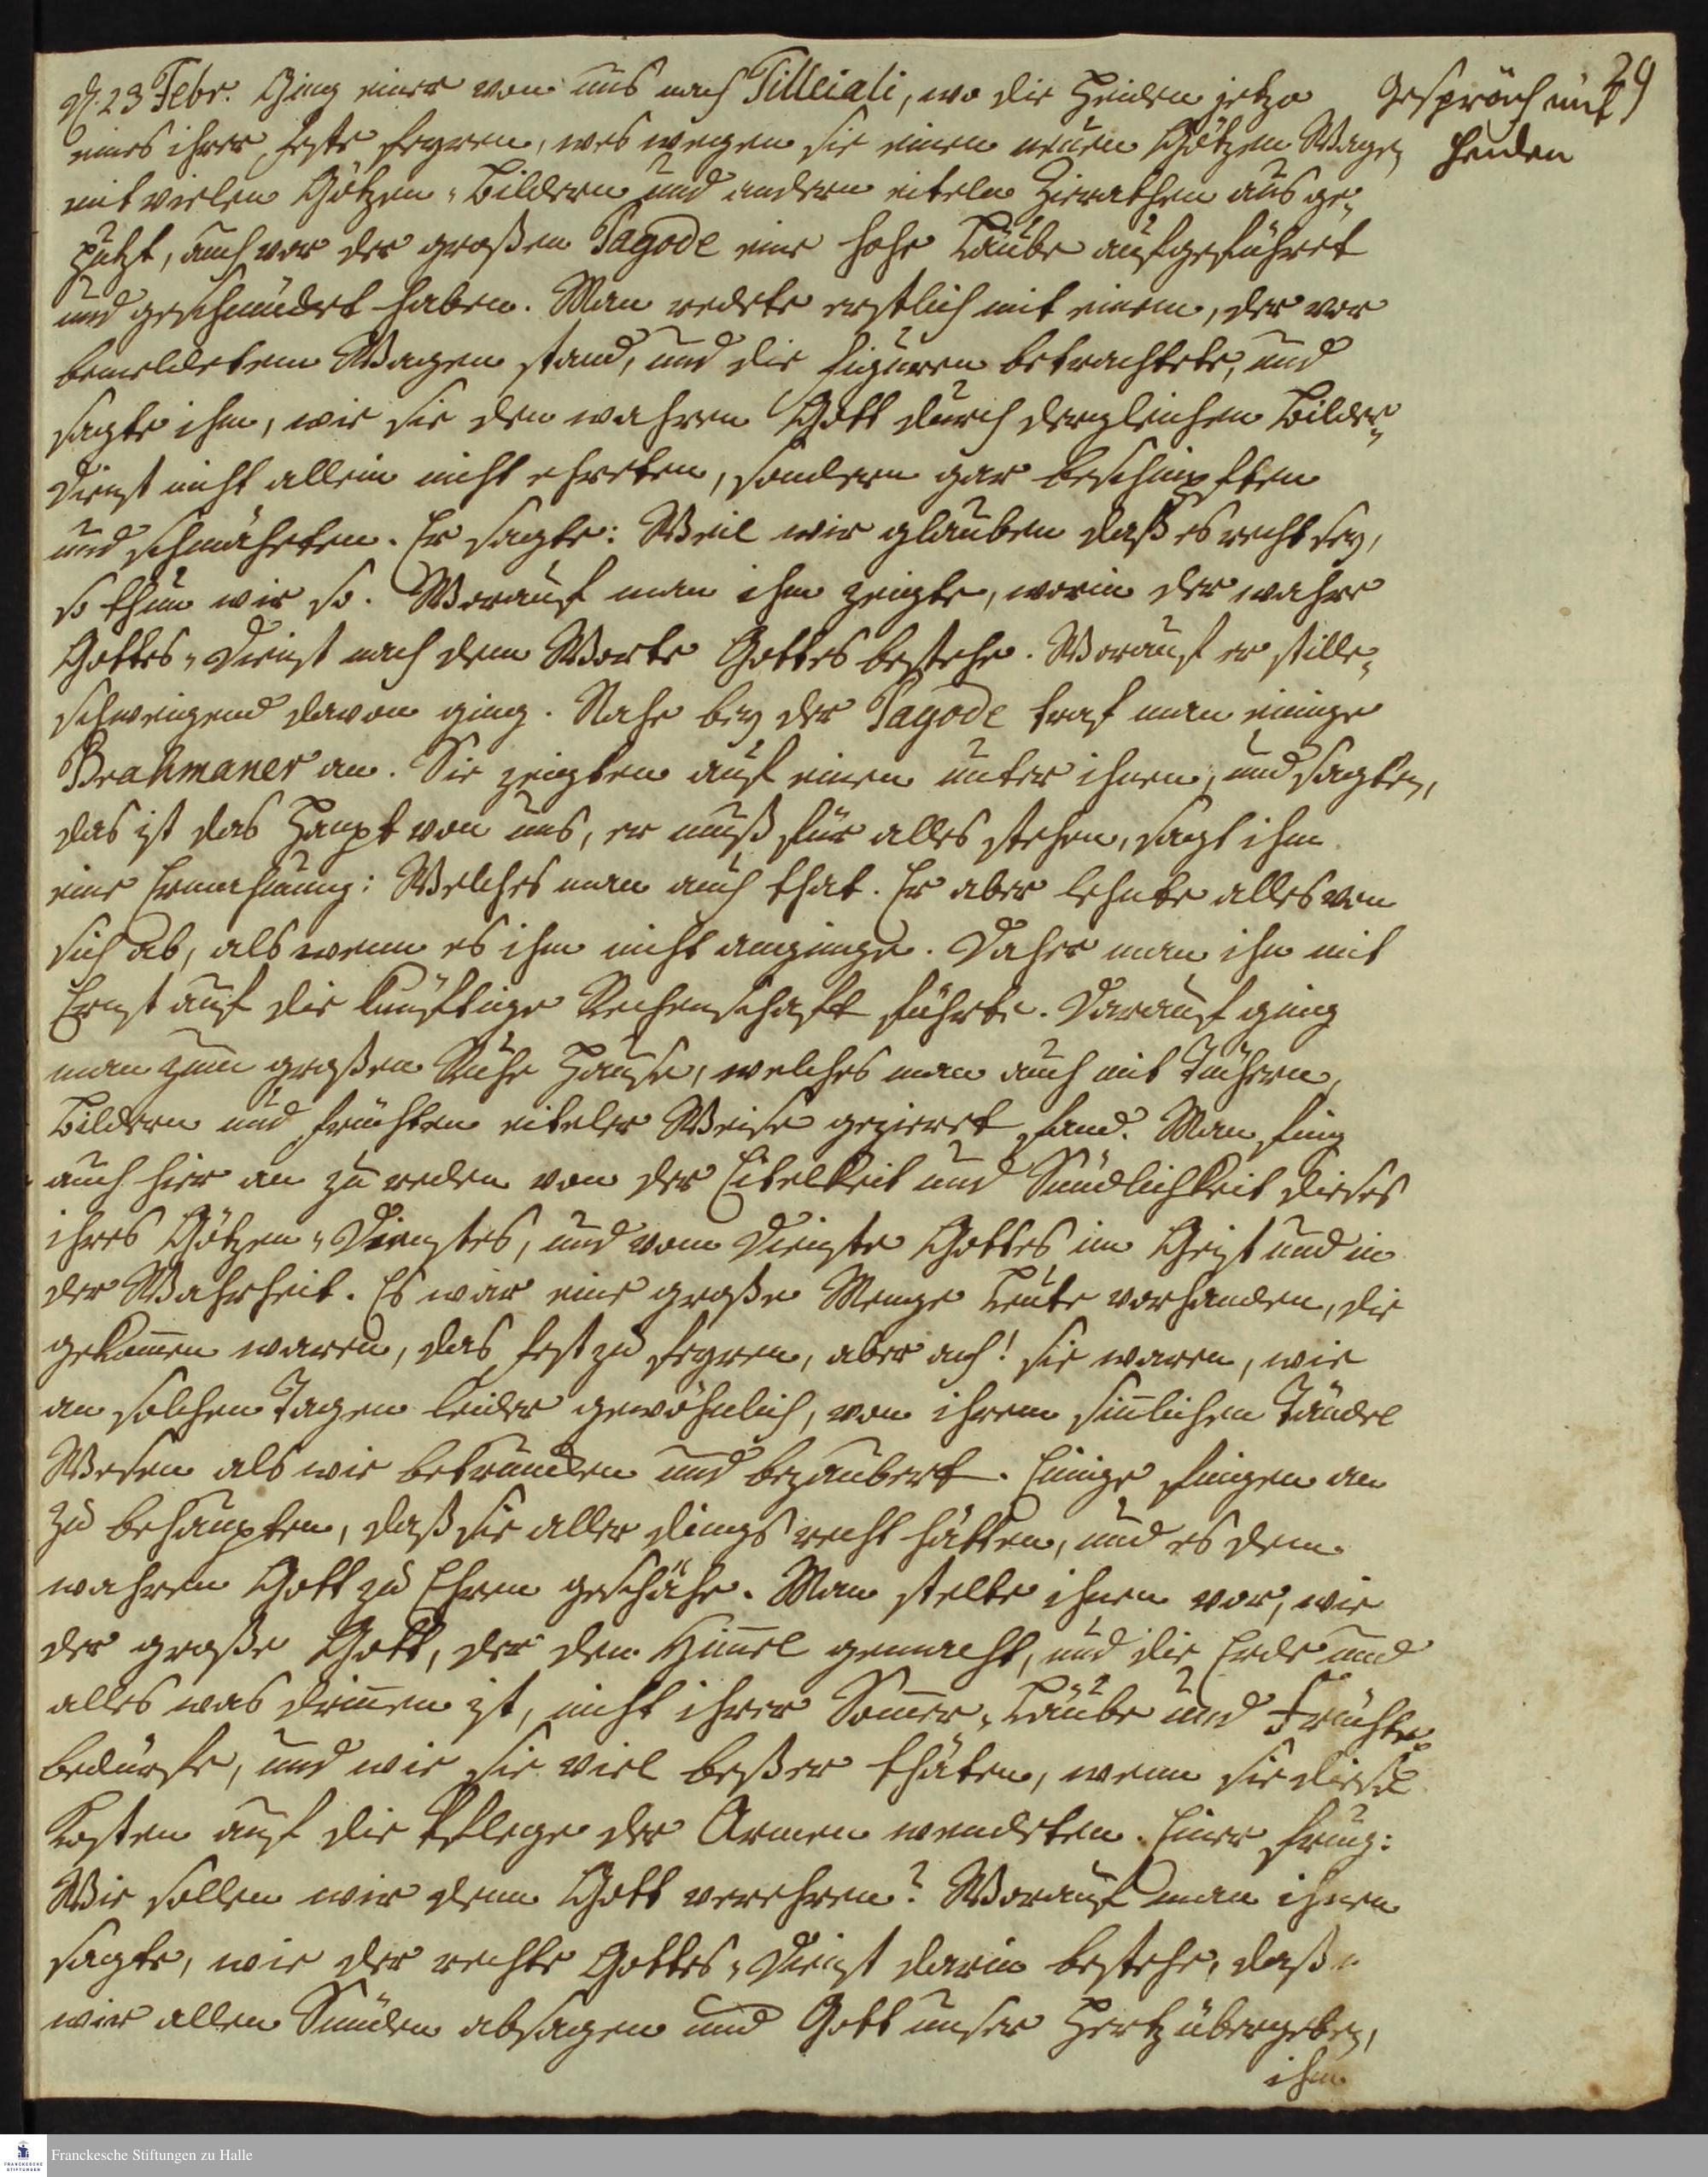 29
Gespräch mit
Heiden
D. 23 Febr. Ging einer von uns nach Tilleiali, wo die Heiden jetzo
eines ihrer Feste feyren, weswegen sie einen neuen Götzen Wagen
mit vielen Götzen-Bildern und andern eiteln Zierathen ausge-
putzt, auch vor der großen Pagode eine hohe Laube aufgeführet
und geschmücket haben. Man redete erstlich mit einem, der vor
bemeldetem Wagen stand, und die Figuren betrachtete, und
sagte ihm, wie sie den wahren Gott durch dergleichen Bilder-
Dienst nicht allein nicht ehreten, sondern gar beschimpften
und schmäheten. Er sagte: Weil wir glauben daß es recht sey,
so thun wir so. Worauf man ihm zeigte, worin der wahre
Gottes-Dienst nach dem Worte Gottes bestehe. Worauf er stille-
schweigend davon ging. Nahe bey der Pagode traf man einige
Brahmaner an. Sie zeigten auf einen unter ihnen, und sagten,
das ist das Haupt von uns, er muß für alles stehen, sagt ihm
eine Ermahnung: Welches man auch that. Er aber lehnte alles von
sich ab, als wenn es ihm nicht anginge. Daher man ihn mit
Ernst auf die künftige Rechenschafft führte. Darauf ging
man zum großen Ruhe Hause, welches man auch mit Tüchern,
Bildern und Früchten eiteler Weise gezieret fand. Man fing
auch hier an zu reden von der Eitelkeit und Sündlichkeit dieses
ihres Götzen-Dienstes, und vom Dienste Gottes im Geist und in
der Wahrheit. Es war eine große Menge Leute vorhanden, die
gekomen waren, das Fest zu feyren, aber ach! sie waren, wie
an solchen Tagen leider gewöhnlich, von ihrem sinlichen Tändel
Wesen als wie betruncken und bezaubert. Einige fingen an
zu behaupten, daß sie aller dings recht hätten, und es dem
wahren Gott zu Ehren geschähe. Man stelte ihnen vor, wie
der große Gott, der den Himel gemacht, und die Erde und
alles was drinen ist, nicht ihrer Somer-Laube und Früchte
bedürfe, und wie sie viel beßer thäten, wenn sie diese
Kosten auf die Pflege der Armen wendeten. Einer frug:
Wie sollen wir denn Gott verehren? Worauf man ihnen
sagte, wie der rechte Gottes-Dienst darin bestehe, daß
wir allen Sünden absagen und Gott unser Hertz übergeben,
ihm
Franckesche Stiftungen zu Halle
FRANCKESCHE
STIFTUNGEN